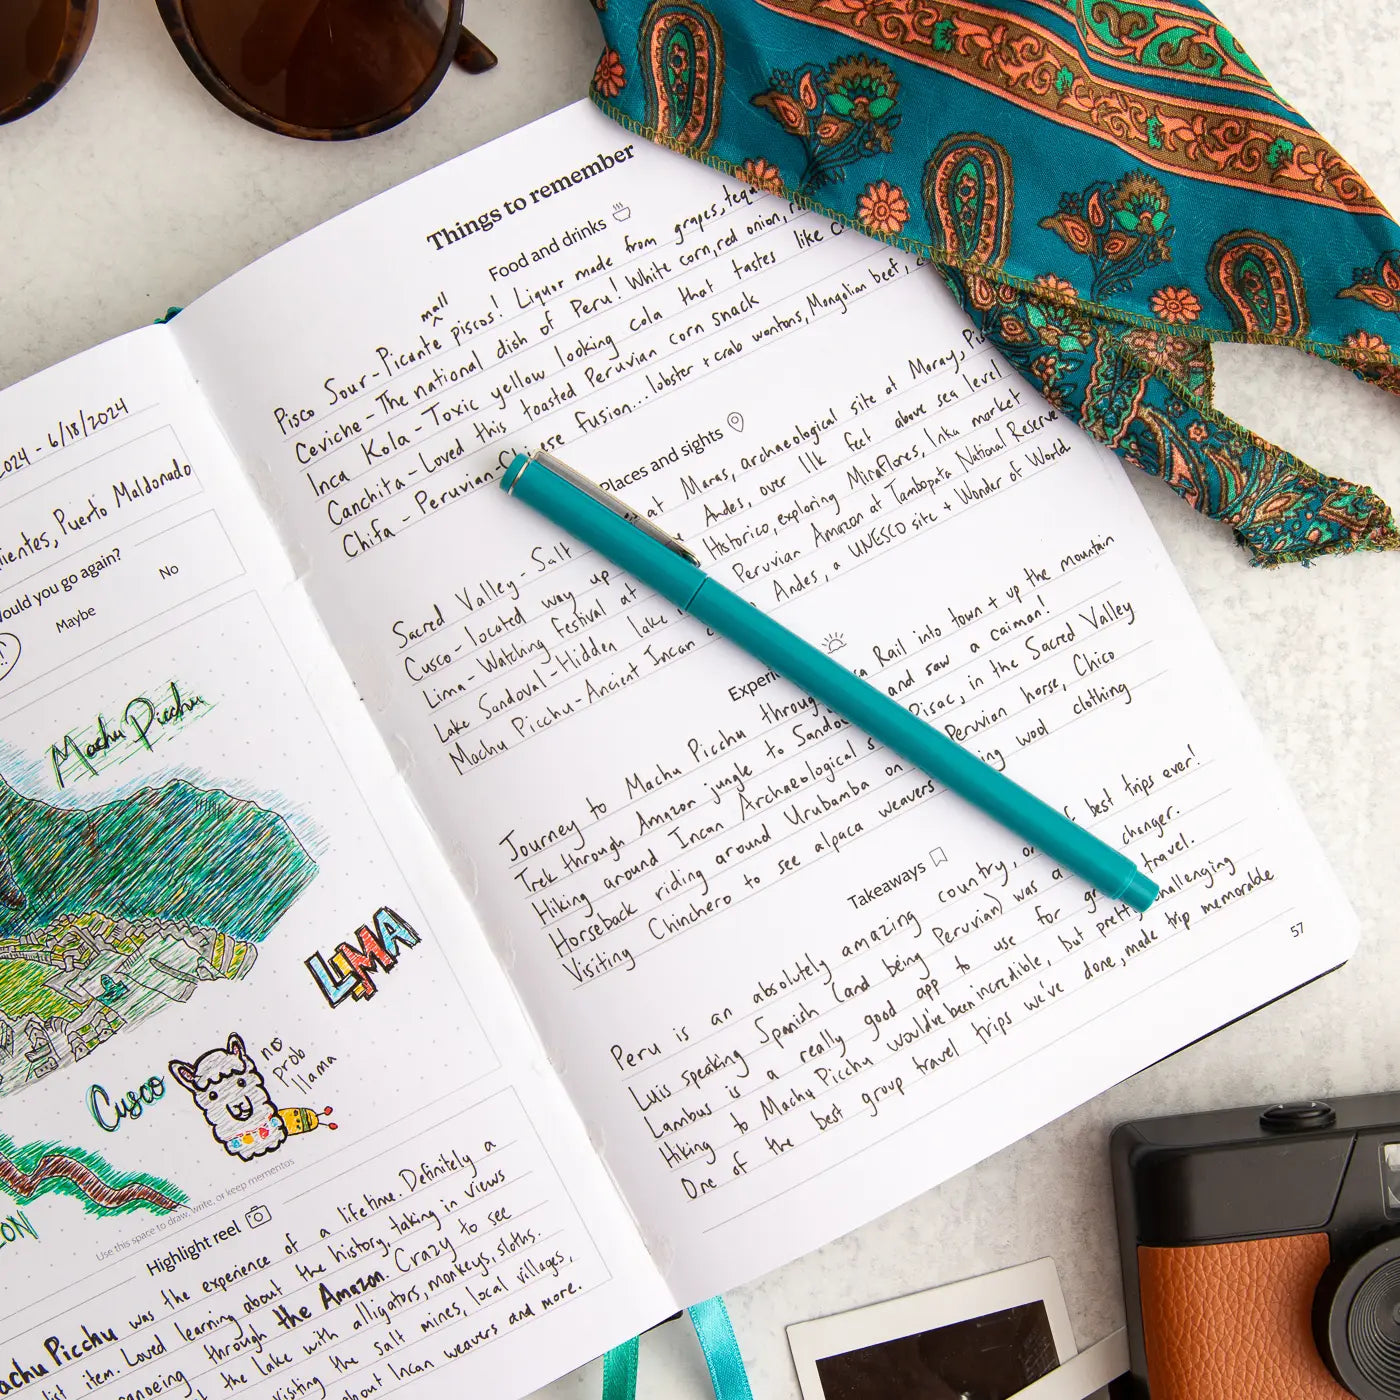 024 - 6/18/2024
ientes, Puerto Maldonado
ould you go again?
Maybe
No
Machu Picchu
LIMA
Cusco
no
prob
llama
ON
Use this space to draw, write, or keep mementos
Highlight reel
achu Picchu was the experience of a lifetime. Definitely a
list item. Loved learning about the history, taking in views
canoeing through the Amazon. Crazy to see
the lake with alligators, monkeys, sloths.
visiting the salt mines, local villages,
about Incan weavers and more.
Things to remember
Food and drinks
mall
Pisco Sour - Picante piscos! Liquor made from grapes, tequ
Ceviche - The national dish of Peru! White corn, red onion,
Inca Kola - Toxic yellow looking cola that tastes like
Canchita - Loved this toasted Peruvian corn snack
Chifa - Peruvian-Chinese fusion... lobster + crab wontons, Mongolian beef,
Places and sights
Sacred Valley - Salt at Maras, archaeological site at Moray, Pis
Cusco - located way up Andes, over 11k feet above sea level
Lima - Watching festival at Historico, exploring Miraflores, Inka market
Lake Sandoval - Hidden lake Peruvian Amazon at Tambopata National Reserve
Machu Picchu - Ancient Incan Andes, a UNESCO site + Wonder of World
Experi
Journey to Machu Picchu throug Rail into town + up the mountain
Trek through Amazon jungle to Sandov and saw a caiman!
Hiking around Incan Archaeological s Pisac, in the Sacred Valley
Horseback riding around Urubamba on Peruvian horse, Chico
Visiting Chinchero to see alpaca weavers ing wool clothing
Takeaways
Peru is an absolutely amazing country, o f best trips ever!
Luis speaking Spanish (and being Peruvian) was a changer.
Lambus is a really good app to use for gr travel.
Hiking to Machu Picchu would've been incredible, but pretty challenging
One of the best group travel trips we've done, made trip memorable
57